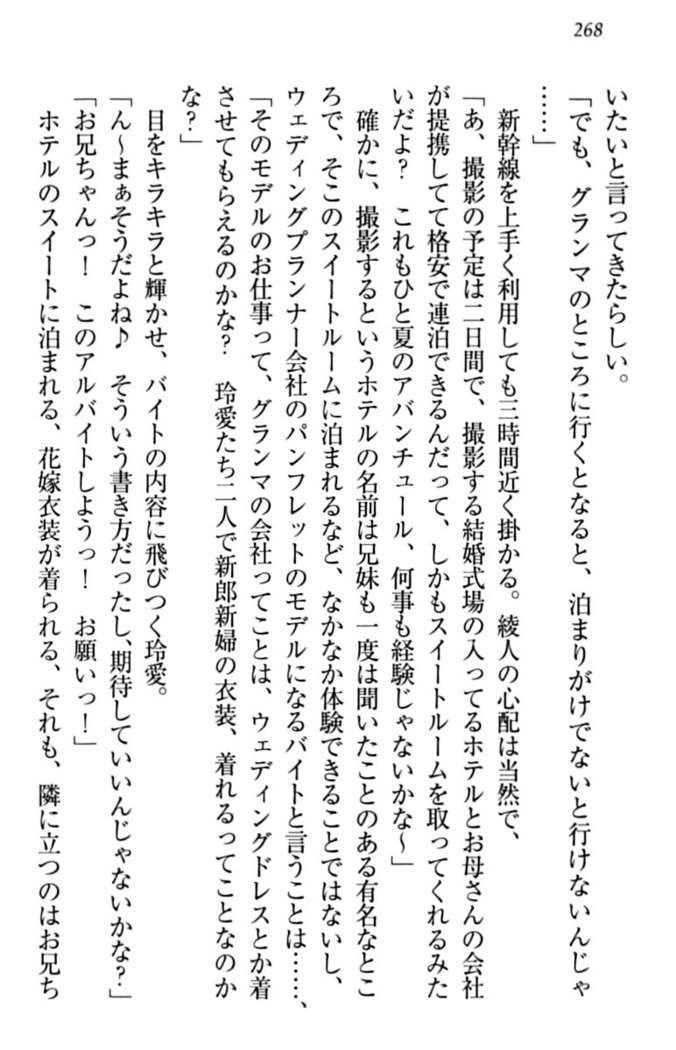 268
いたいと言ってきたらしい。
「でも、グランマのところに行くとなると、泊まりがけでないと行けないんじゃ
……」
新幹線を上手く利用しても三時間近く掛かる。綾人の心配は当然で、
「あ、撮影の予定は二日間で、撮影する結婚式場の入ってるホテルとお母さんの会社
が提携してて格安で連泊できるんだって、しかもスイートルームを取ってくれるみた
いだよ？　これもひと夏のアバンチュール、何事も経験じゃないかな〜」
確かに、撮影するというホテルの名前は兄妹も一度は聞いたことのある有名なとこ
ろで、そこのスイートルームに泊まれるなど、なかなか体験できることではないし、
ウェディングプランナー会社のパンフレットのモデルになるバイトと言うことは……、
「そのモデルのお仕事って、グランマの会社ってことは、ウェディングドレスとか着
させてもらえるのかな？　玲愛たち二人で新郎新婦の衣装、着れるってことなのか
な？」
目をキラキラと輝かせ、バイトの内容に飛びつく玲愛。
「ん〜まぁそうだよね♪　そういう書き方だったし、期待していいんじゃないかな？」
「お兄ちゃんっ！　このアルバイトしようっ！　お願いっ！」
ホテルのスイートに泊まれる、花嫁衣装が着られる、それも、隣に立つのはお兄ち